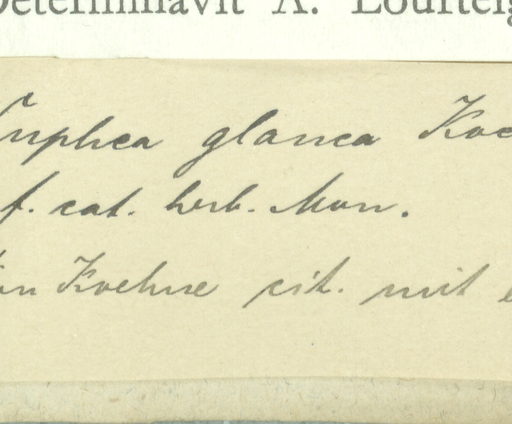 Determinavit A. Lourteig
Cuphea glauca Koe
f. cat. herb. Mon.
von Koehne cit. mit